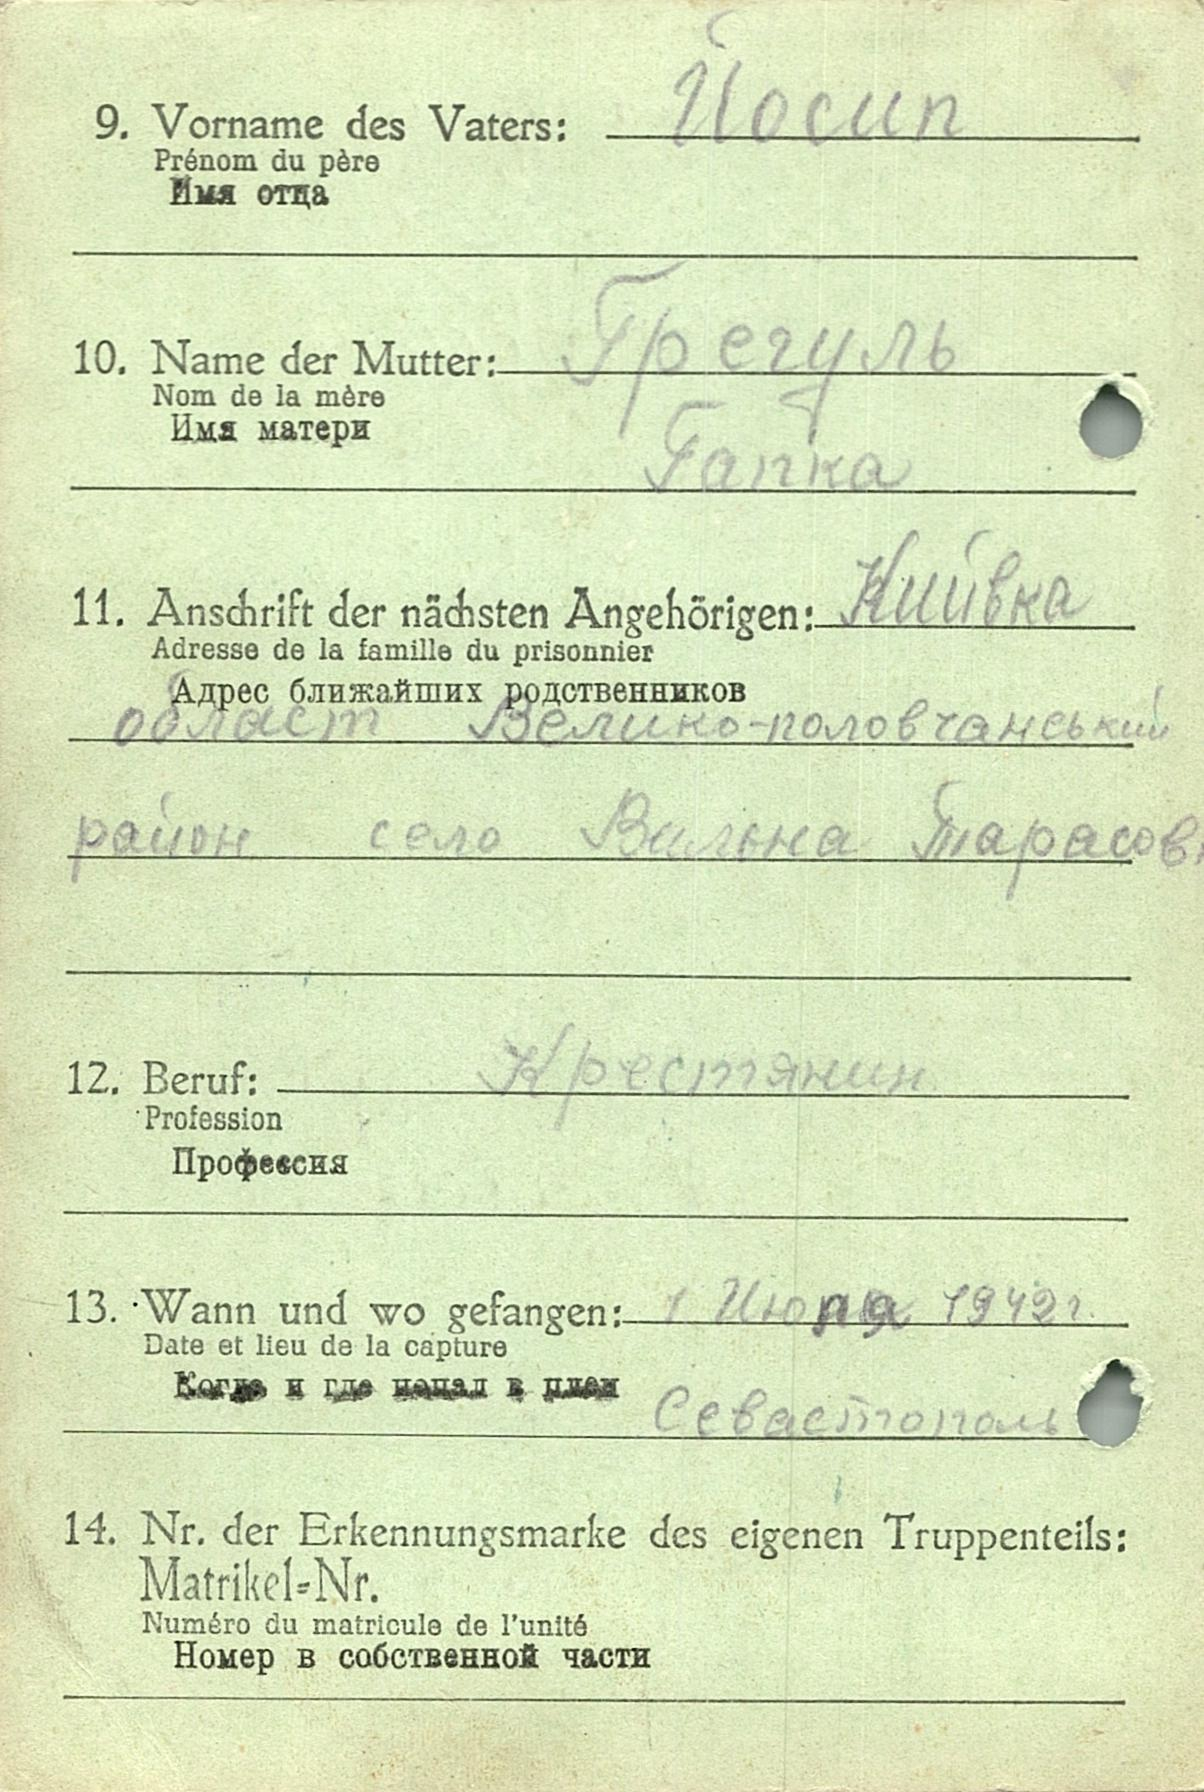 9. Vorname des Vaters: Йосип
Prénom du père
Имя отца
10. Name der Mutter: Грегуль
Nom de la mère
Имя матери Гапка
11. Anschrift der nächsten Angehörigen: Київка
Adresse de la famille du prisonnier
Адрес ближайших родственников
област Велико-половчанський
район село Вильна Тарасовк
12. Beruf: Крестянин
Profession
Профессия
13. Wann und wo gefangen: 1 1942 г.
Date et lieu de la capture
Когда и где попал в плен Севастополь
14. Nr. der Erkennungsmarke des eigenen Truppenteils:
Matrikel-Nr.
Numéro du matricule de l'unité
Номер в собственной части